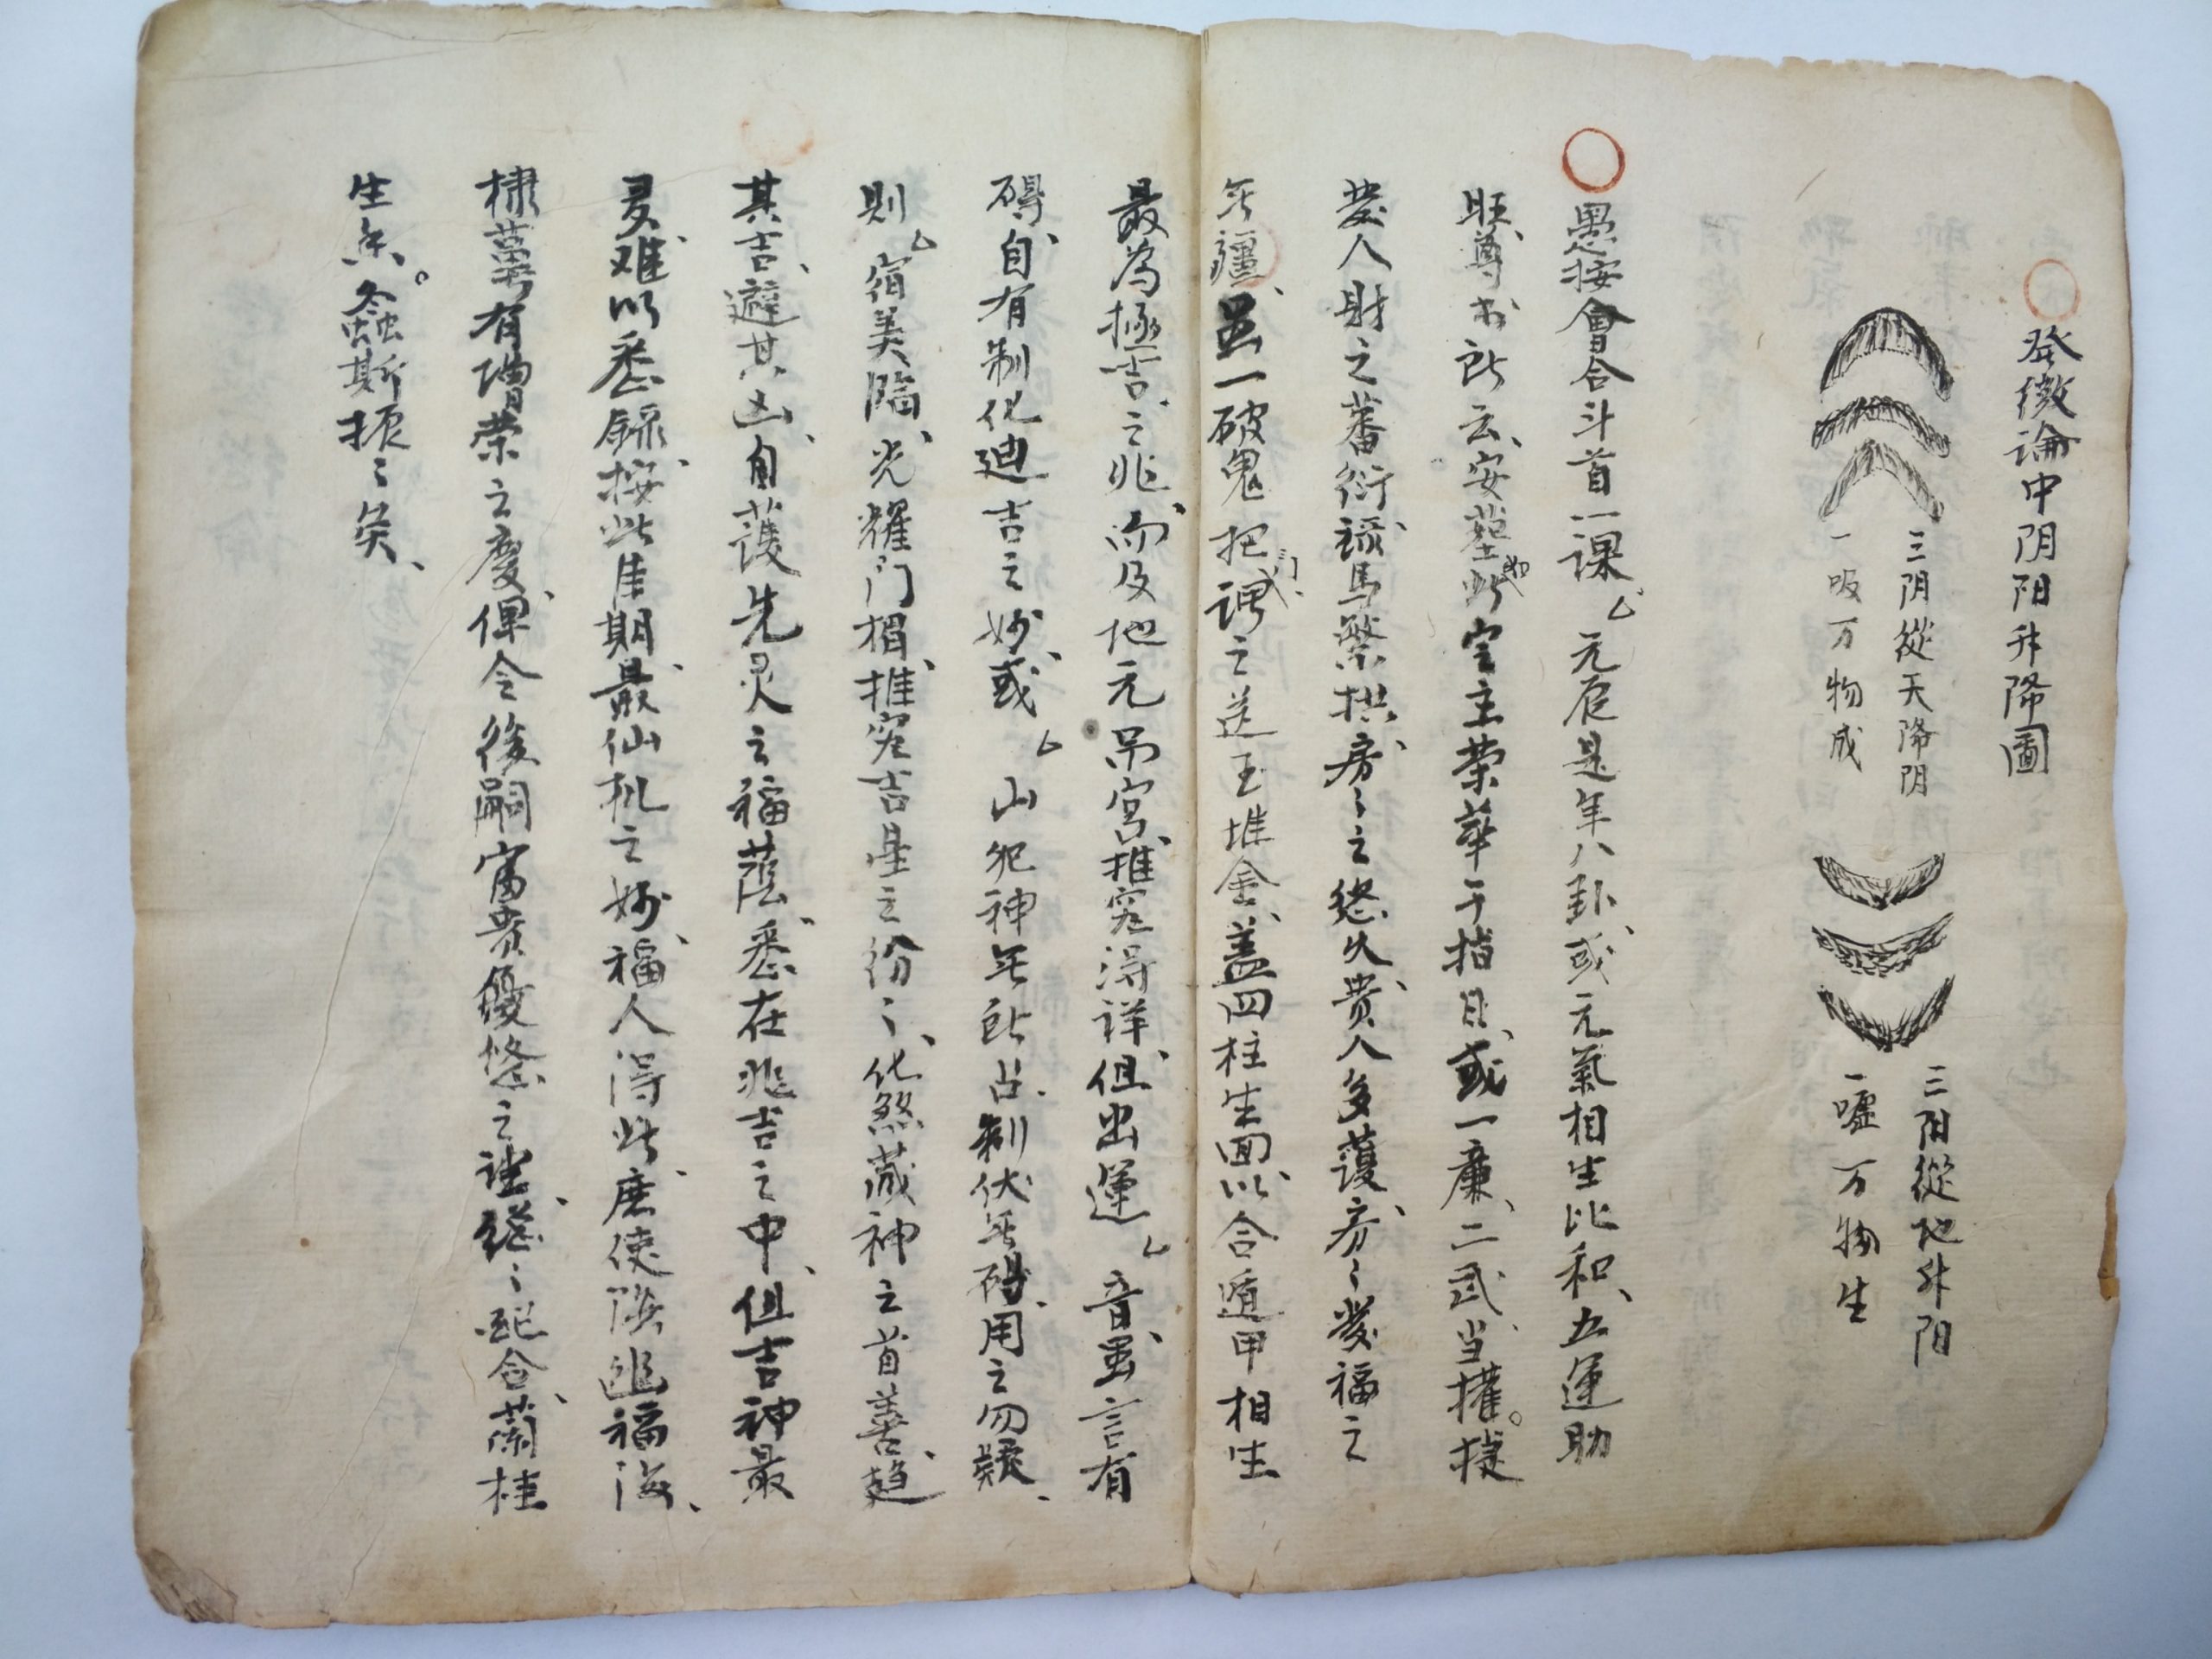 發微論中阴阳升降圖
三阴從天降阴
一吸万物成
三阳從地升阳
一噓万物生
愚按會合斗首一課厶元辰是年八卦或元氣相生比和五運助
旺尊书所云安塟如此宅主荣華于指日或一廉二武当權捷
發人財之蕃衍騄馬繁拱房〻之悠久贵人多護房〻發福之
无疆虽一破鬼把之送玉堆金盖四柱生面以合遁甲相生
最為極吉之兆而及地元吊宮推究得詳但出運厶音虽言有
碍自有制化迪吉之妙或厶山犯神无所占制伏无碍用之勿疑
則厶宿美臨光耀门楣推究吉星之份〻化煞藏神之首善趋
其吉避其凶自護先灵之福蔭悉在兆吉之中但吉神最
夛难以悉録按此佳期最仙机之妙福人得此庶使陰迎福海
棣萼有增荣之慶俾令後嗣富貴優悠之讖繼〻配合蘭桂
生香螽斯振〻矣